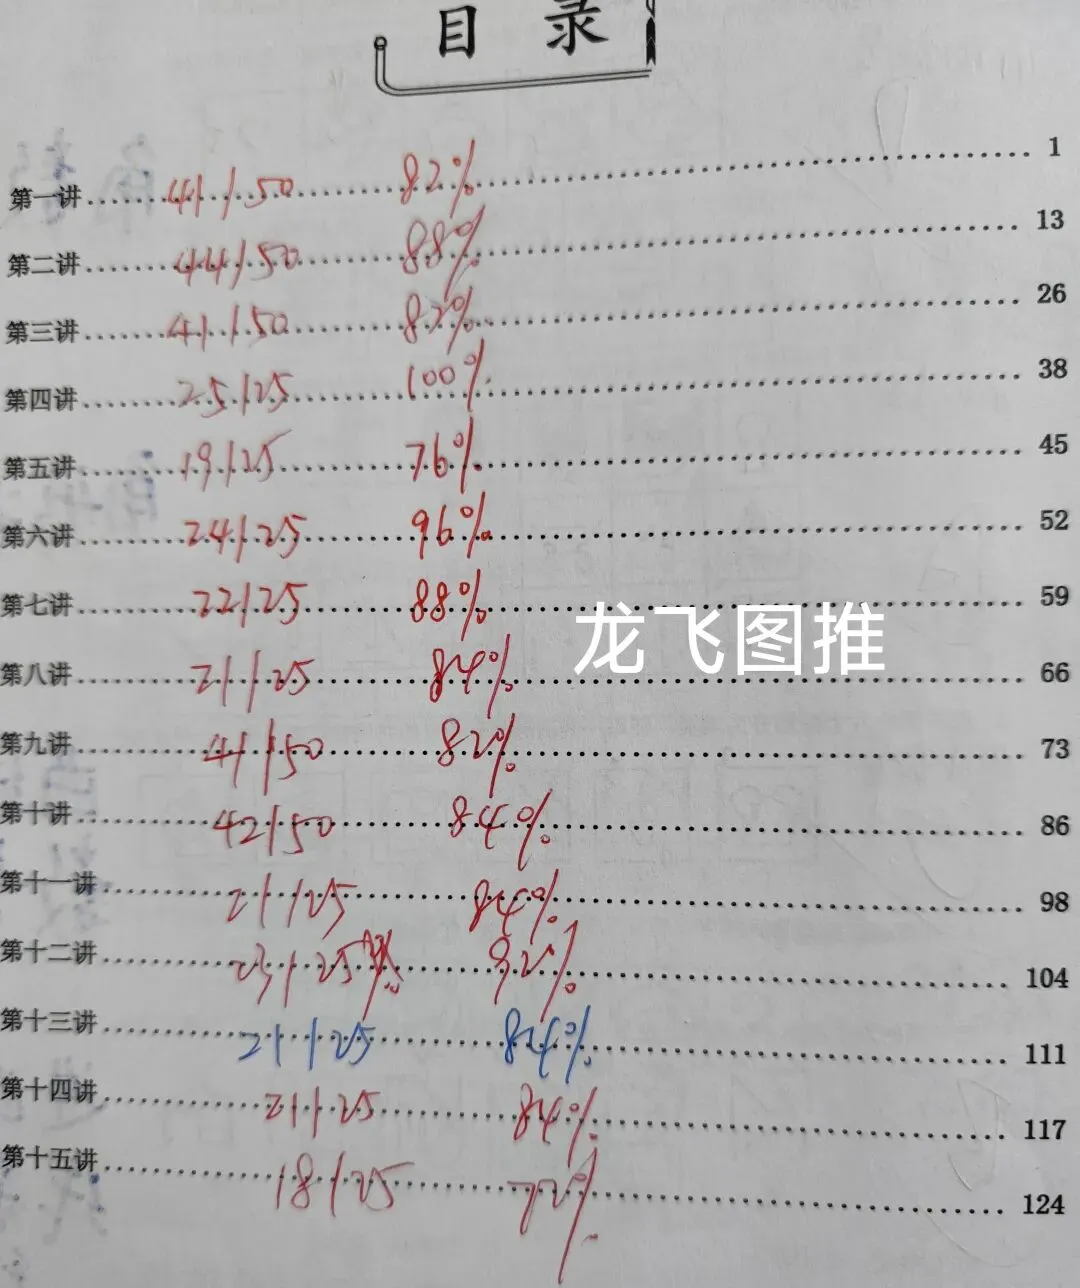 目 录
第一讲 41/50 82% 1
第二讲 44/50 88% 13
第三讲 41/50 82% 26
第四讲 25/25 100% 38
第五讲 19/25 76% 45
第六讲 24/25 96% 52
第七讲 22/25 88% 59
龙飞图推
第八讲 21/25 84% 66
第九讲 41/50 82% 73
第十讲 42/50 84% 86
第十一讲 21/25 84% 98
第十二讲 23/25 92% 104
第十三讲 21/25 84% 111
第十四讲 21/25 84% 117
第十五讲 18/25 72% 124